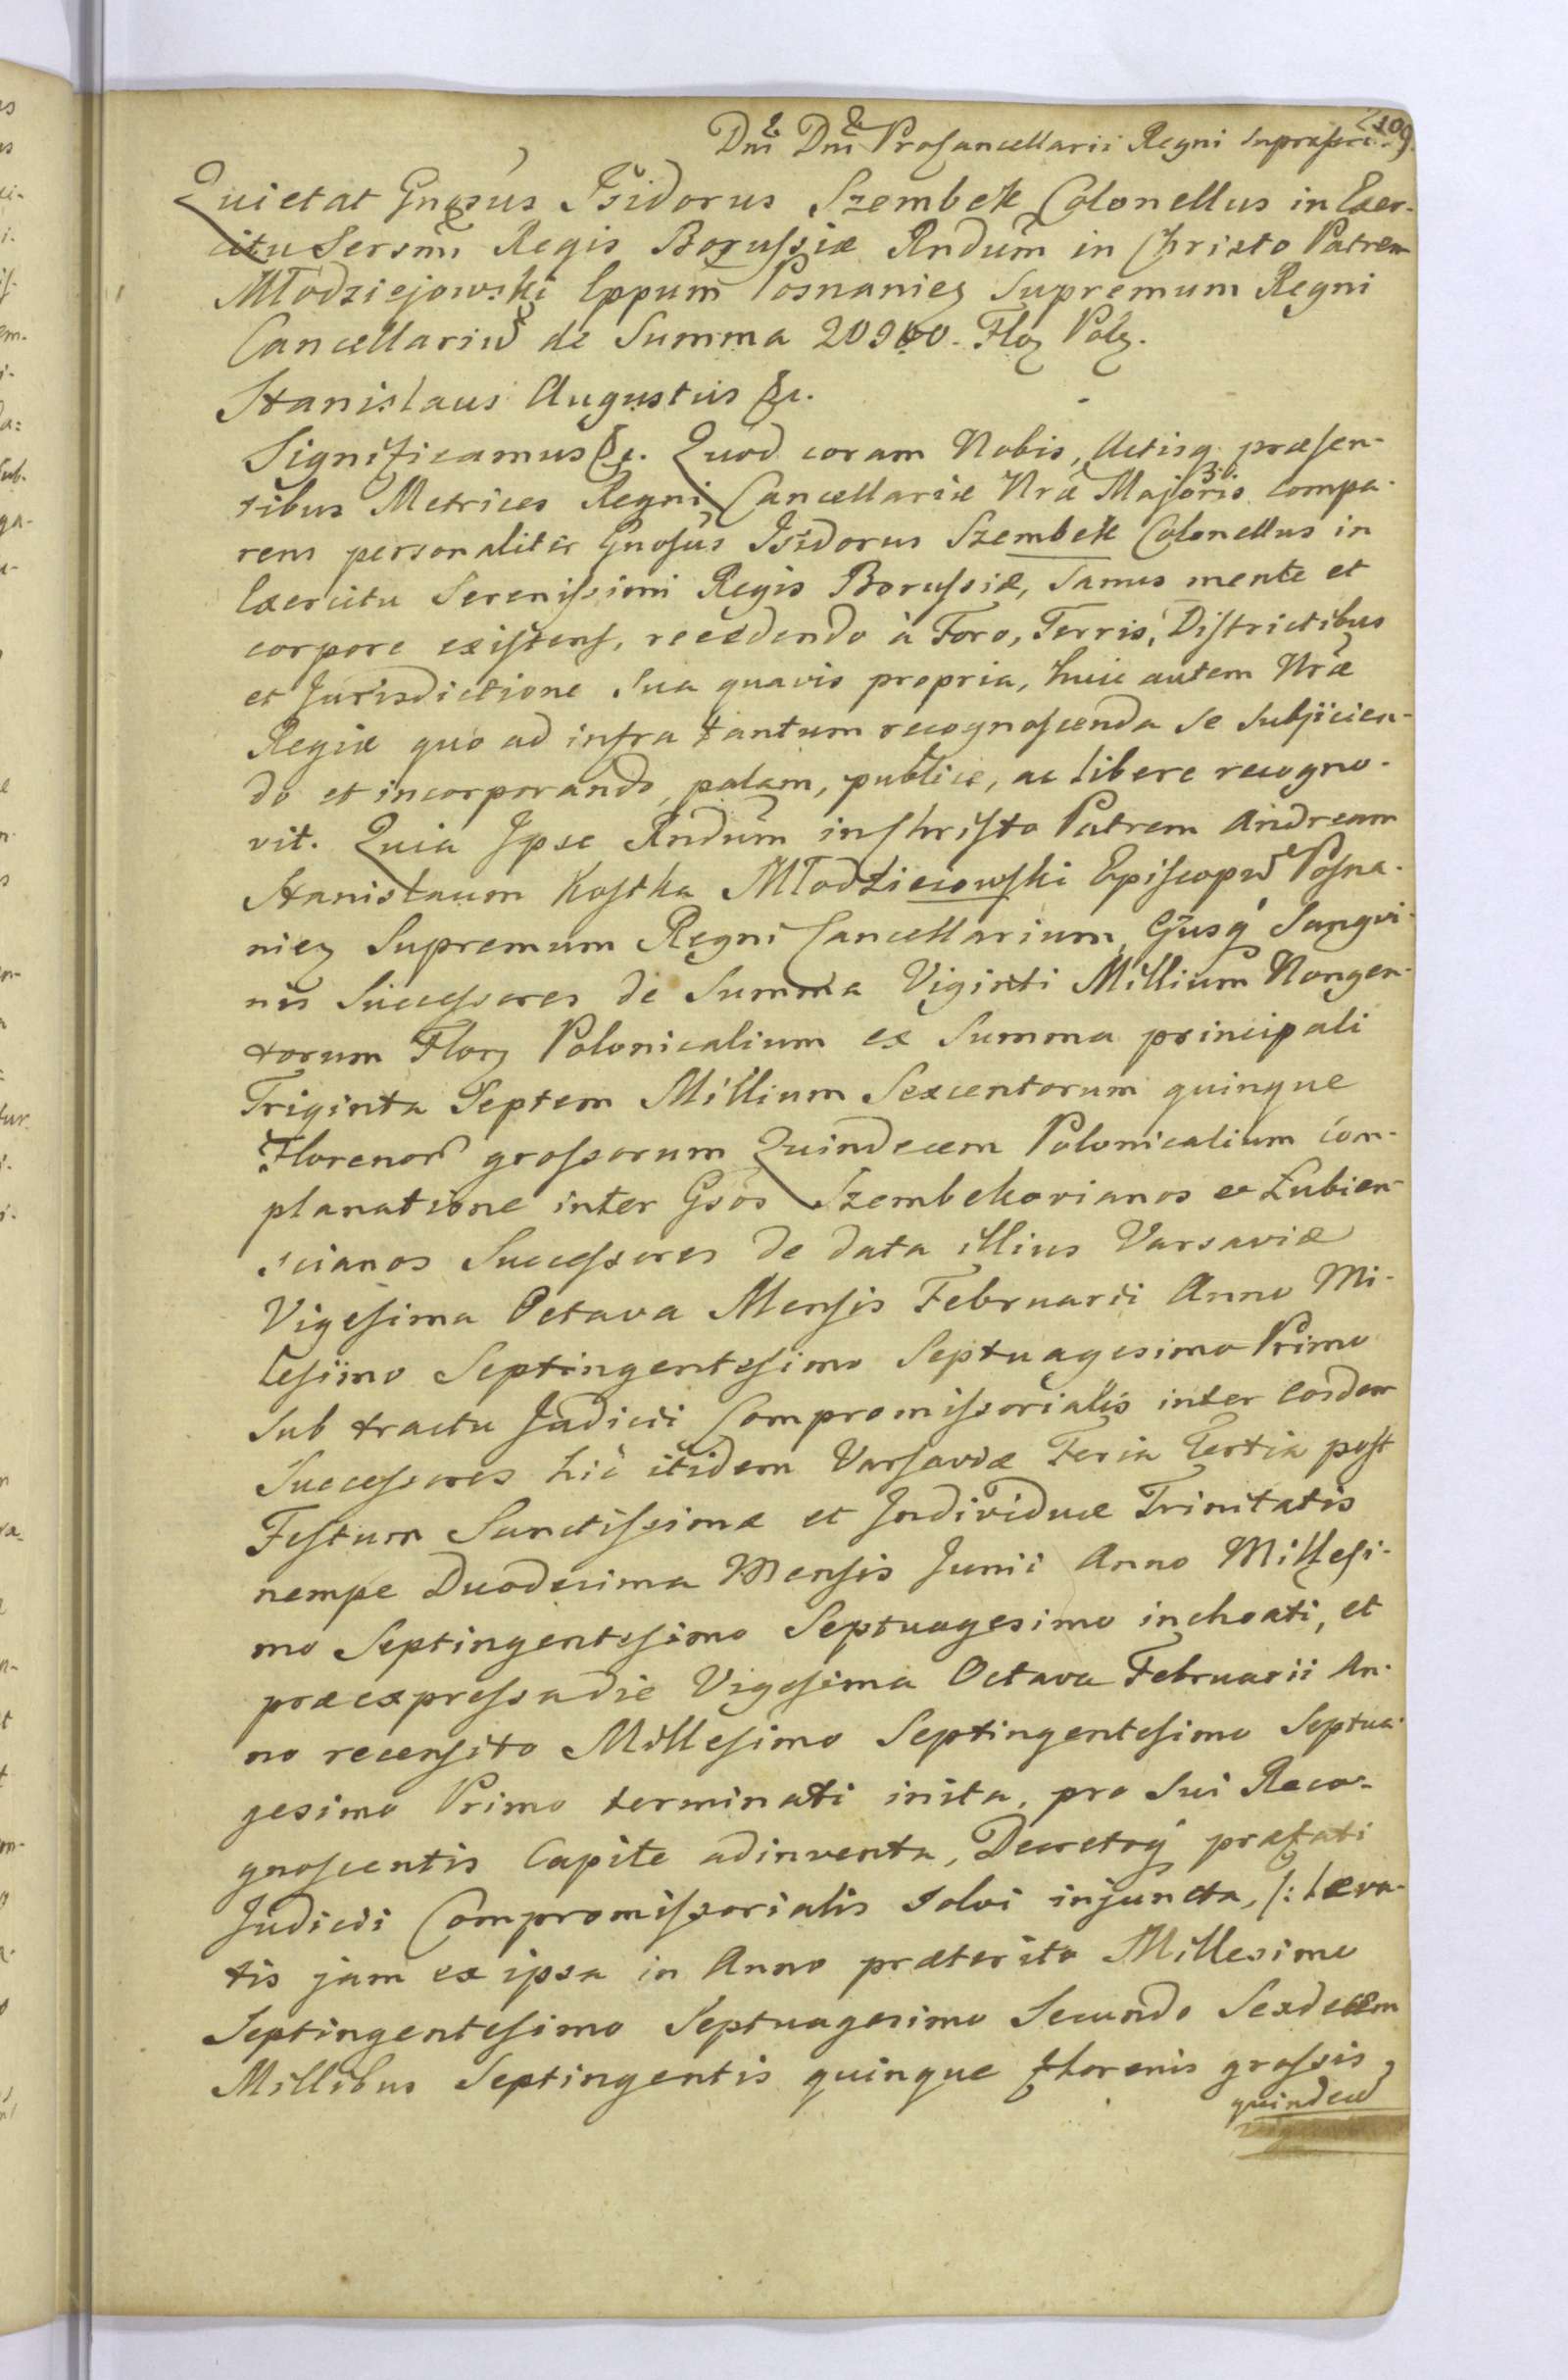 Dni Dni Procancellarii Regni suprascri.
Quietat Gnosus Isidorus Szembek Colonellus in Exer-
citu Sersmi Regis Borussiæ Rndum in Christo Patrem
Młodziejowski Eppum Posnanien Supremum Regni
Cancellariu de Summa 20900. Flo Pol.
Stanislaus Augustus &c.
Significamus &c. Quod coram Nobis, Actisq præsen-
tibus Metrices Regni Cancellariæ Nræ Majoris compa-
rens personaliter Gnosus Isidorus Szembek Colonellus in
Exercitu Serenissimi Regis Borussiæ, Sanus mente et
corpore existens, recedendo à Foro, Terris, Districtibus
et Jurisdictione Sua quavis propria, huic autem Nræ
Regiæ quo ad infra tantum recognoscenda se subjicien-
do et incorporando, palam, publice, ac libere recogno-
vit. Quia Ipse Rndum in Christo Patrem Andream
Stanislaum Kostka Młodzieiowski Episcopu Posna-
nien Supremum Regni Cancellarium, Ejusq Sangvi-
nis Successores de Summa Viginti Millium Nongen-
torum Flor Polonicalium ex Summa principali
Triginta Septem Millium Sexcentorum quinque
Florenor grossorum Quindecem Polonicalium Com-
planatione inter Gsos Szembekovianos et Łubien-
scianos Successores de data illius Varsaviæ
Vigesima Octava Mensis Februarii Anno Mi-
lesimo Septingentesimo Septuagesimo Primo
Sub tractu Judicii Compromissorialis inter eosdem
Successores hic itidem Varsaviæ Feria Tertia post
Festum Sanctissimæ et Individuæ Trinitatis
nempe Duodecima Mensis Junii Anno Millesi-
mo Septingentesimo Septuagesimo inchoati, et
præexpressa die Vigesima Octava Februarii An-
no recensito Millesimo Septingentesimo Septua-
gesimo Primo terminati inita, pro Sui Reco-
gnoscentis Capite adinventa, Decretoq præfati
Judicii Compromissorialis solvi injuncta, /: leva-
tis jam ex ipsa in Anno præterito Millesimo
Septingentesimo Septuagesimo Secundo Sexdecem
Millibus Septingentis quinque florenis grossis
quindece